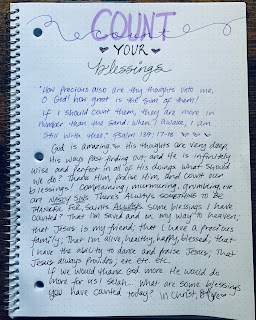 COUNT
YOUR
blessings
"How precious also are thy thoughts unto me,
O God! how great is the sum of them!
If I should count them, they are more in
number than the sand: when I awake, I am
still with thee." Psalm 139:17-18
God is amazing. His thoughts are very deep,
His ways past finding out, and He is infinitely
wise and perfect in all of His doings. What should
we do? Thank Him, praise Him, and count our
blessings! Complaining, murmuring, grumbling, etc
are NASTY SINS. There's ALWAYS SOMETHING TO BE
THANKFUL FOR, SAINTS. ALWAYS. Some blessings I have
counted? That I'm saved and on my way to heaven;
that Jesus is my friend; that I have a precious
family; That I'm alive, healthy, happy, blessed; that
I have the ability to dance and praise Jesus; That
Jesus always provides; etc. etc. etc.
If we would thank God more He would do
more for us! Selah... What are some blessings
you have counted today? In Christ,